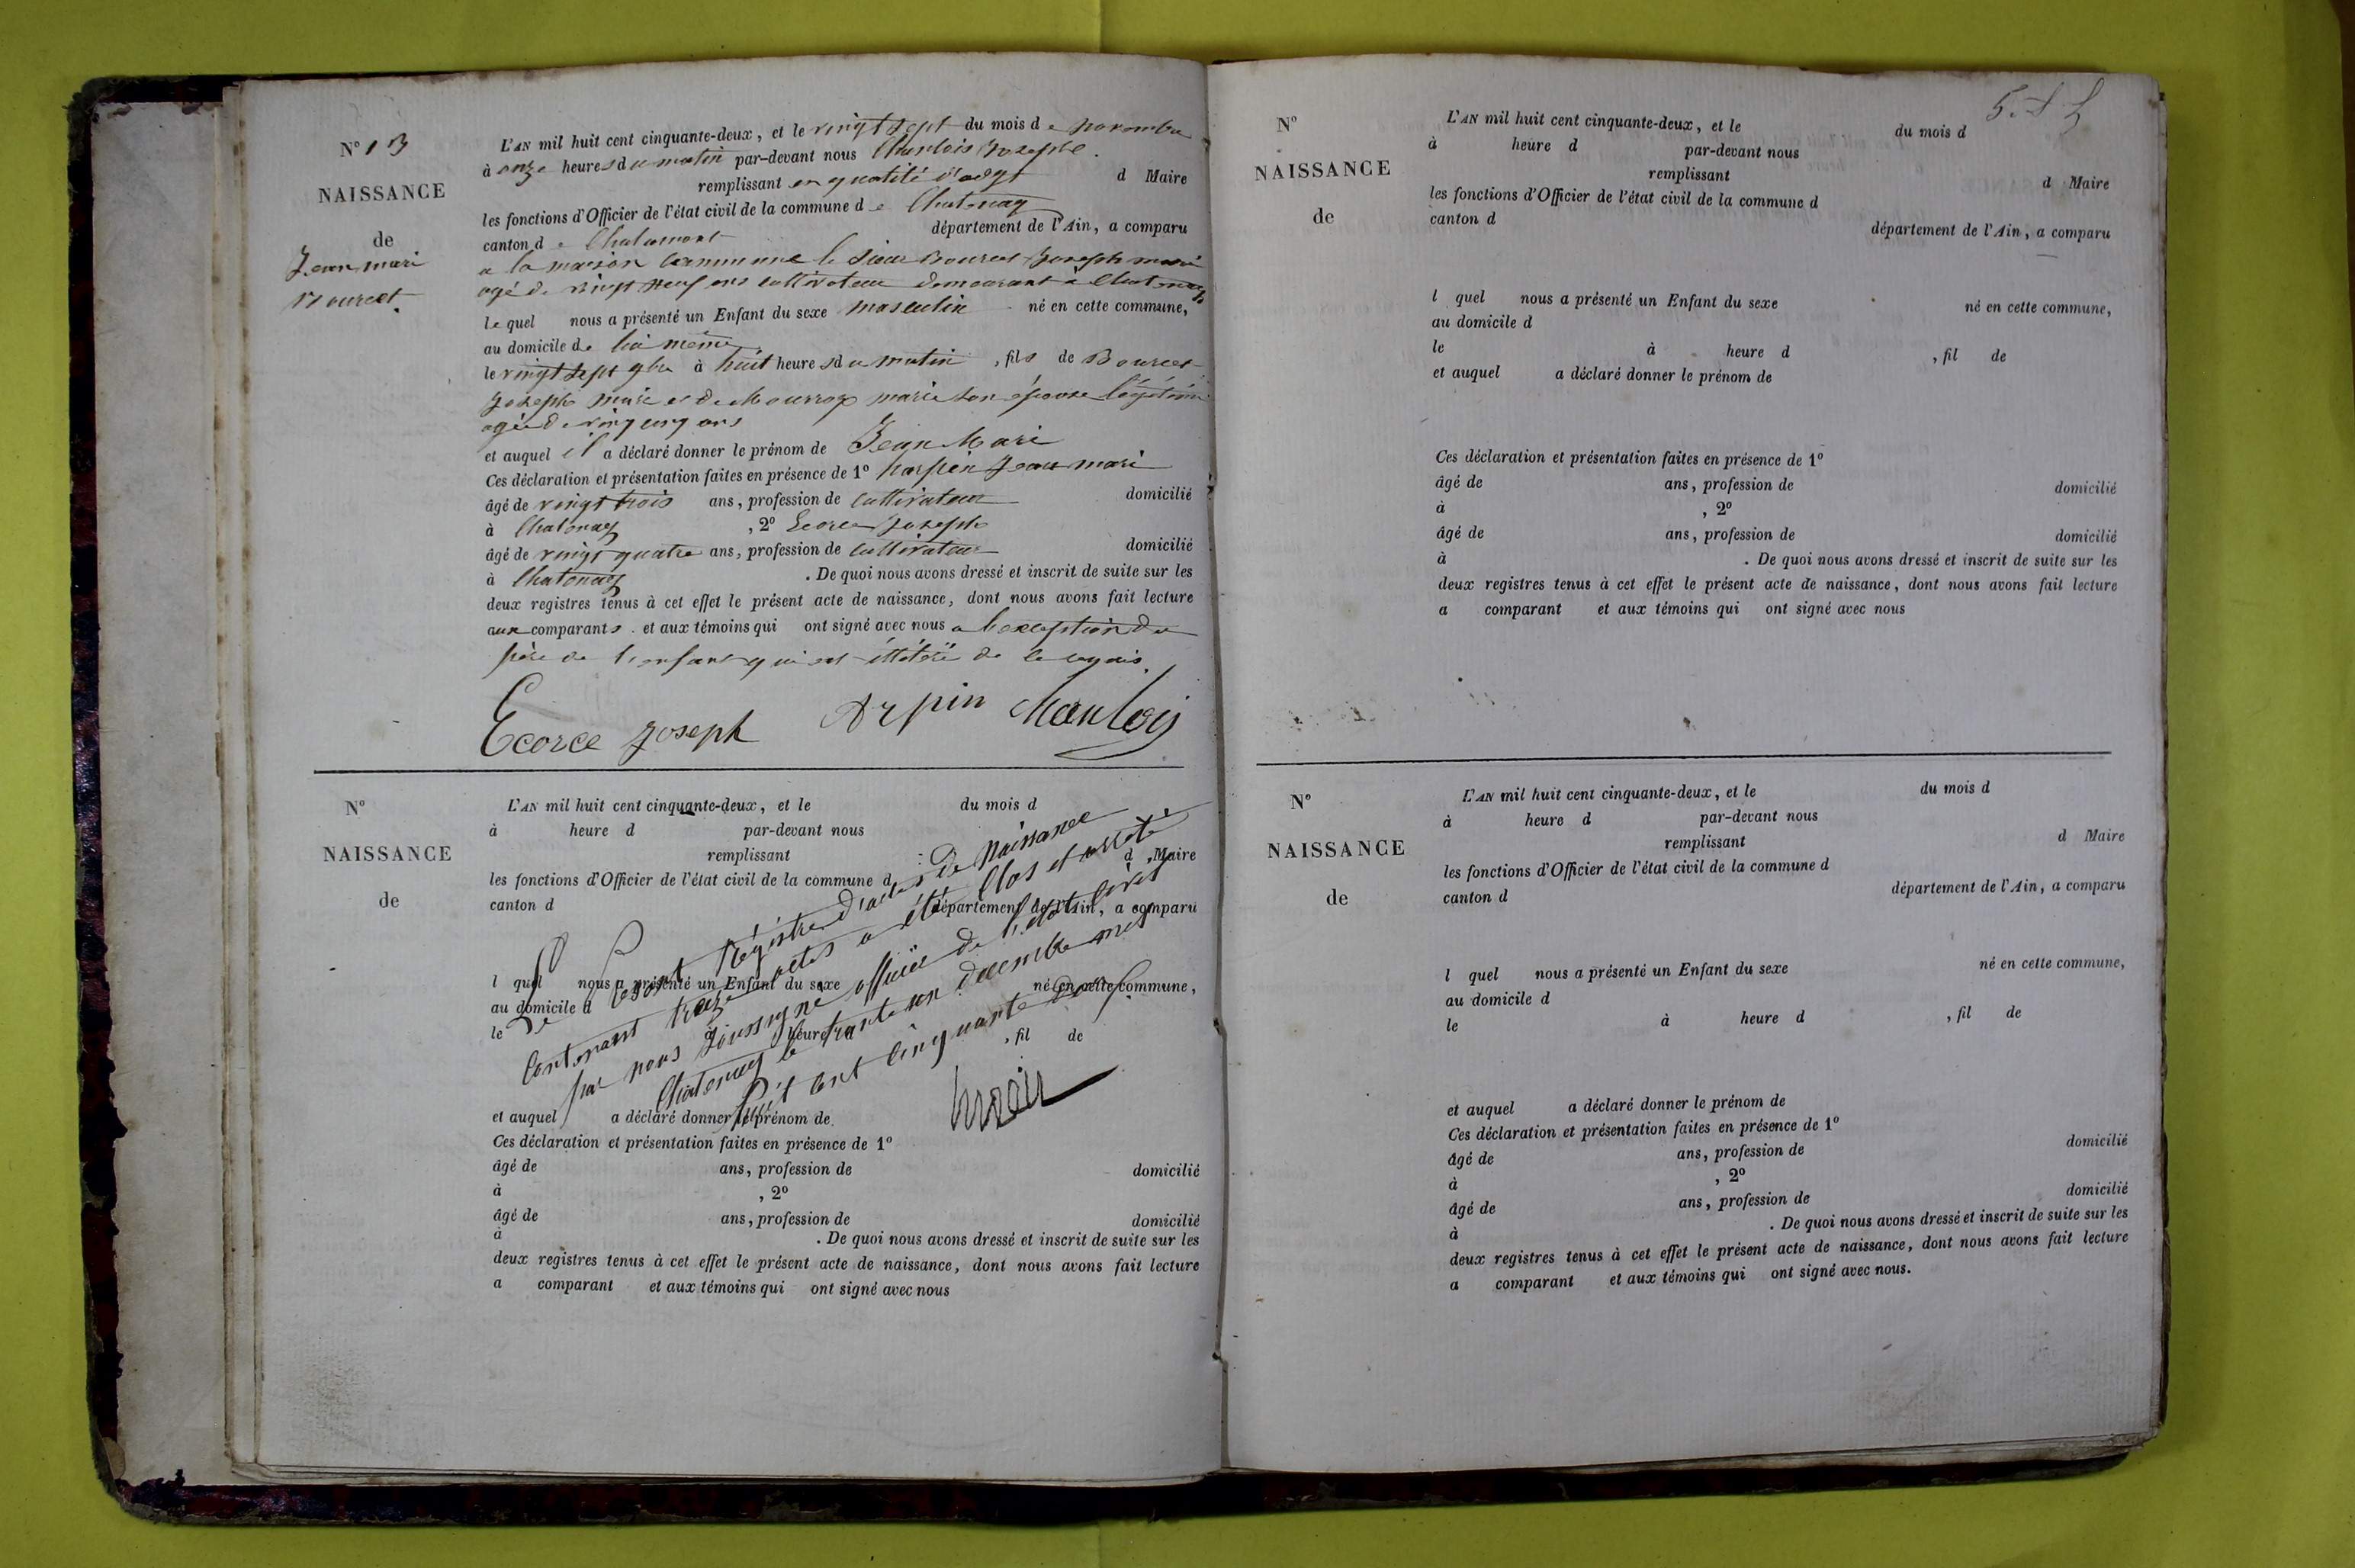 N° 13
NAISSANCE
de
Jean mari
Bourcet
L'AN mil huit cent cinquante-deux, et le vingt sept du mois de novembre
à onze heures du matin par-devant nous Chanlois Joseph
remplissant en qualité d'adjt d Maire
les fonctions d'Officier de l'état civil de la commune de Chatenay
canton de Chalamont département de l'Ain, a comparu
a la maison commune le sieur Bourcet Joseph marie
agé de vingt neuf ans cultivateur demeurant à Chatenay
lequel nous a présenté un Enfant du sexe masculin né en cette commune,
au domicile de lui même
le vingt sept 9bre à huit heures du matin, fils de Bourcet
Joseph marie et de marie son épouse légitime
agée de vingt ans
et auquel il a déclaré donner le prénom de Jean Mari
Ces déclaration et présentation faites en présence de 1° harpin Jean mari
âgé de vingt trois ans, profession de cultivateur domicilié
à Chatenay, 2° Ecorce Joseph
âgé de vingt quatre ans, profession de cultivateur domicilié
à Chatenay. De quoi nous avons dressé et inscrit de suite sur les
deux registres tenus à cet effet le présent acte de naissance, dont nous avons fait lecture
aux comparants et aux témoins qui ont signé avec nous a l'exception du
père de l'enfant qui est de ce
Ecorce Joseph Arpin Chanlois
N°
NAISSANCE
de
L'AN mil huit cent cinquante-deux, et le du mois d
à heure d par-devant nous
remplissant d Maire
les fonctions d'Officier de l'état civil de la commune d
canton d département de l'Ain, a comparu
l quel nous a présenté un Enfant du sexe né en cette commune,
au domicile d
le à heure d, fil de
Le présent Régistre d'actes de Naissance
Contenant treize actes a été Clos et arrêté
par nous soussigné officier de l'état civil
Chatenay le trente un décembre mil
huit cent cinquante deux.
et auquel a déclaré donner le prénom de
Ces déclaration et présentation faites en présence de 1°
âgé de ans, profession de domicilié
à , 2°
âgé de ans, profession de domicilié
à . De quoi nous avons dressé et inscrit de suite sur les
deux registres tenus à cet effet le présent acte de naissance, dont nous avons fait lecture
a comparant et aux témoins qui ont signé avec nous
N°
NAISSANCE
de
L'AN mil huit cent cinquante-deux, et le du mois d
à heure d par-devant nous
remplissant d Maire
les fonctions d'Officier de l'état civil de la commune d
canton d département de l'Ain, a comparu
l quel nous a présenté un Enfant du sexe né en cette commune,
au domicile d
le à heure d , fil de
et auquel a déclaré donner le prénom de
Ces déclaration et présentation faites en présence de 1°
âgé de ans, profession de domicilié
à , 2°
âgé de ans, profession de domicilié
à . De quoi nous avons dressé et inscrit de suite sur les
deux registres tenus à cet effet le présent acte de naissance, dont nous avons fait lecture
a comparant et aux témoins qui ont signé avec nous
N°
NAISSANCE
de
L'AN mil huit cent cinquante-deux, et le du mois d
à heure d par-devant nous
remplissant d Maire
les fonctions d'Officier de l'état civil de la commune d
canton d département de l'Ain, a comparu
l quel nous a présenté un Enfant du sexe né en cette commune,
au domicile d
le à heure d , fil de
et auquel a déclaré donner le prénom de
Ces déclaration et présentation faites en présence de 1°
âgé de ans, profession de domicilié
à , 2°
âgé de ans, profession de domicilié
à . De quoi nous avons dressé et inscrit de suite sur les
deux registres tenus à cet effet le présent acte de naissance, dont nous avons fait lecture
a comparant et aux témoins qui ont signé avec nous.